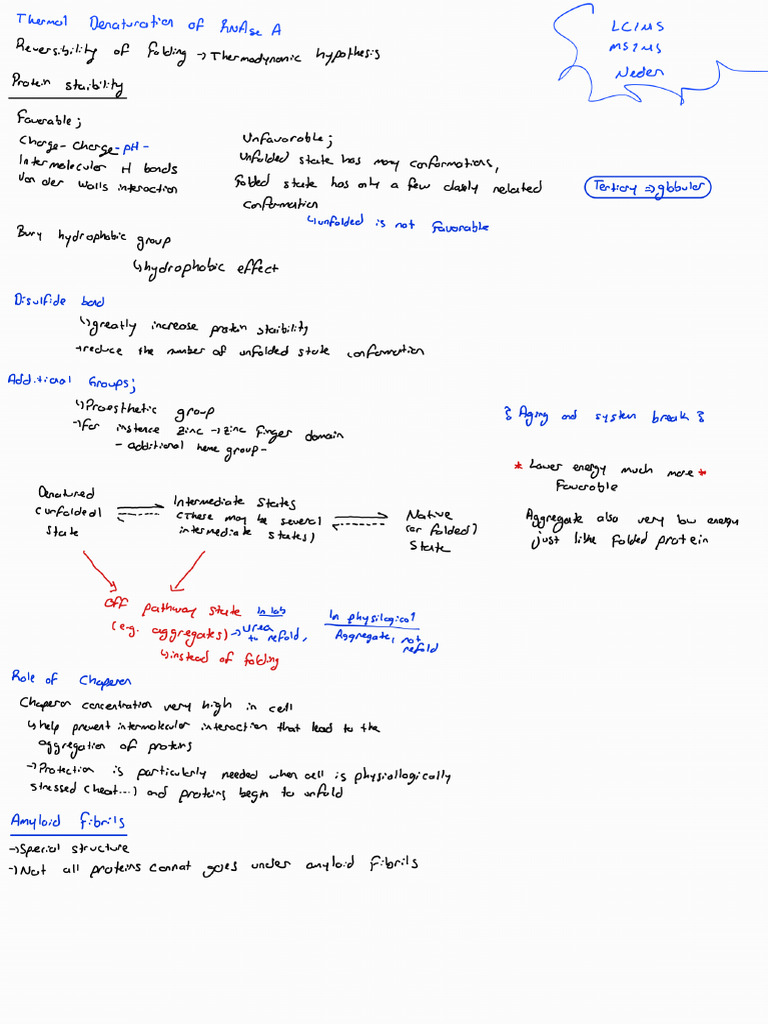 Thermal Denaturation of RNAse A
Reversibility of folding → Thermodynamic hypothesis
LC/MS
MS/MS
Neden
Protein staibility
Favorable;
Charge-Charge-pH-
Intermolecular H bonds
Van der Walls interaction
Unfavorable;
Unfolded state has many conformations,
Folded state has only a few closely related
conformation
↳unfolded is not Favorable
Tertiary ⇒ globular
Bury hydrophobic group
↳hydrophobic effect
Disulfide bond
↳greatly increase protein staibility
→reduce the number of unfolded state conformation
Additional Groups;
↳Proesthetic group
→for instance zinc → zinc finger domain
- additional heme group -
} Aging and system break }
* Lower energy much more *
Favorable
Aggregate also very low energy
just like Folded protein
Denatured
(unfolded)
State
Intermediate States
(There may be several
intermediate states)
Native
(or folded)
State
Off pathway state
(e.g. aggregates)
↳instead of folding
In lab
→Urea
to refold,
In physilogical
Aggregate, not
refold
Role of Chaperon
Chaperon concentration very high in cell
↳help prevent intermolecular interaction that lead to the
aggregation of proteins
→Protection is particularly needed when cell is physiollogically
stressed (heat...) and proteins begin to unfold
Amyloid Fibrils
→Special structure
→Not all proteins cannat goes under amyloid fibrils